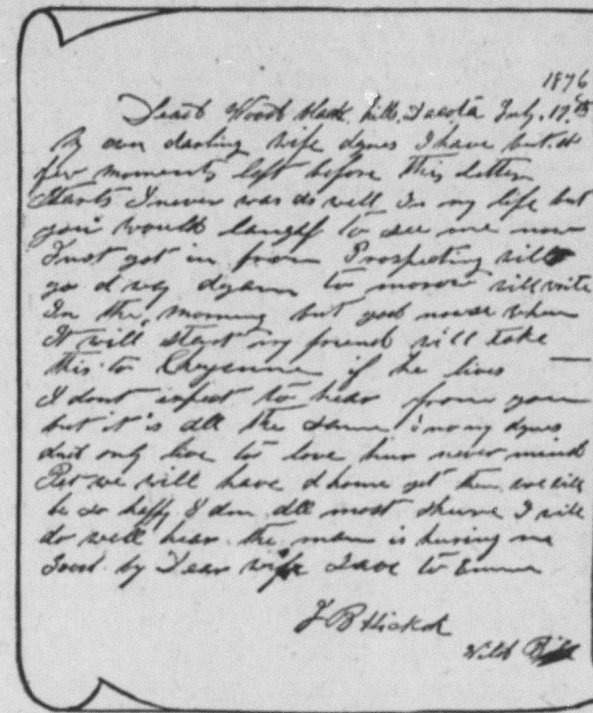 1876
Dead Wood black hills, Dacota July. 17th
My own darling wife Agnes I have but a
few moments left before this letter
Starts I never was as well In my life but
you would laugh to see me now
Just got in from Prospecting will
go a way again to morow will write
In the morning but god nowse when
It will start my friend will take
this to Cheyenne if he lives
I dont expect to hear from you
but it is all the same i no my Agnes
and only live to love hur never mind
Pet we will have a home yet then we will
be so happy I am all most shure I will
do well hear the man is huring me
Good by Dear wife Love to Emma
J B Hickok
Wild Bill